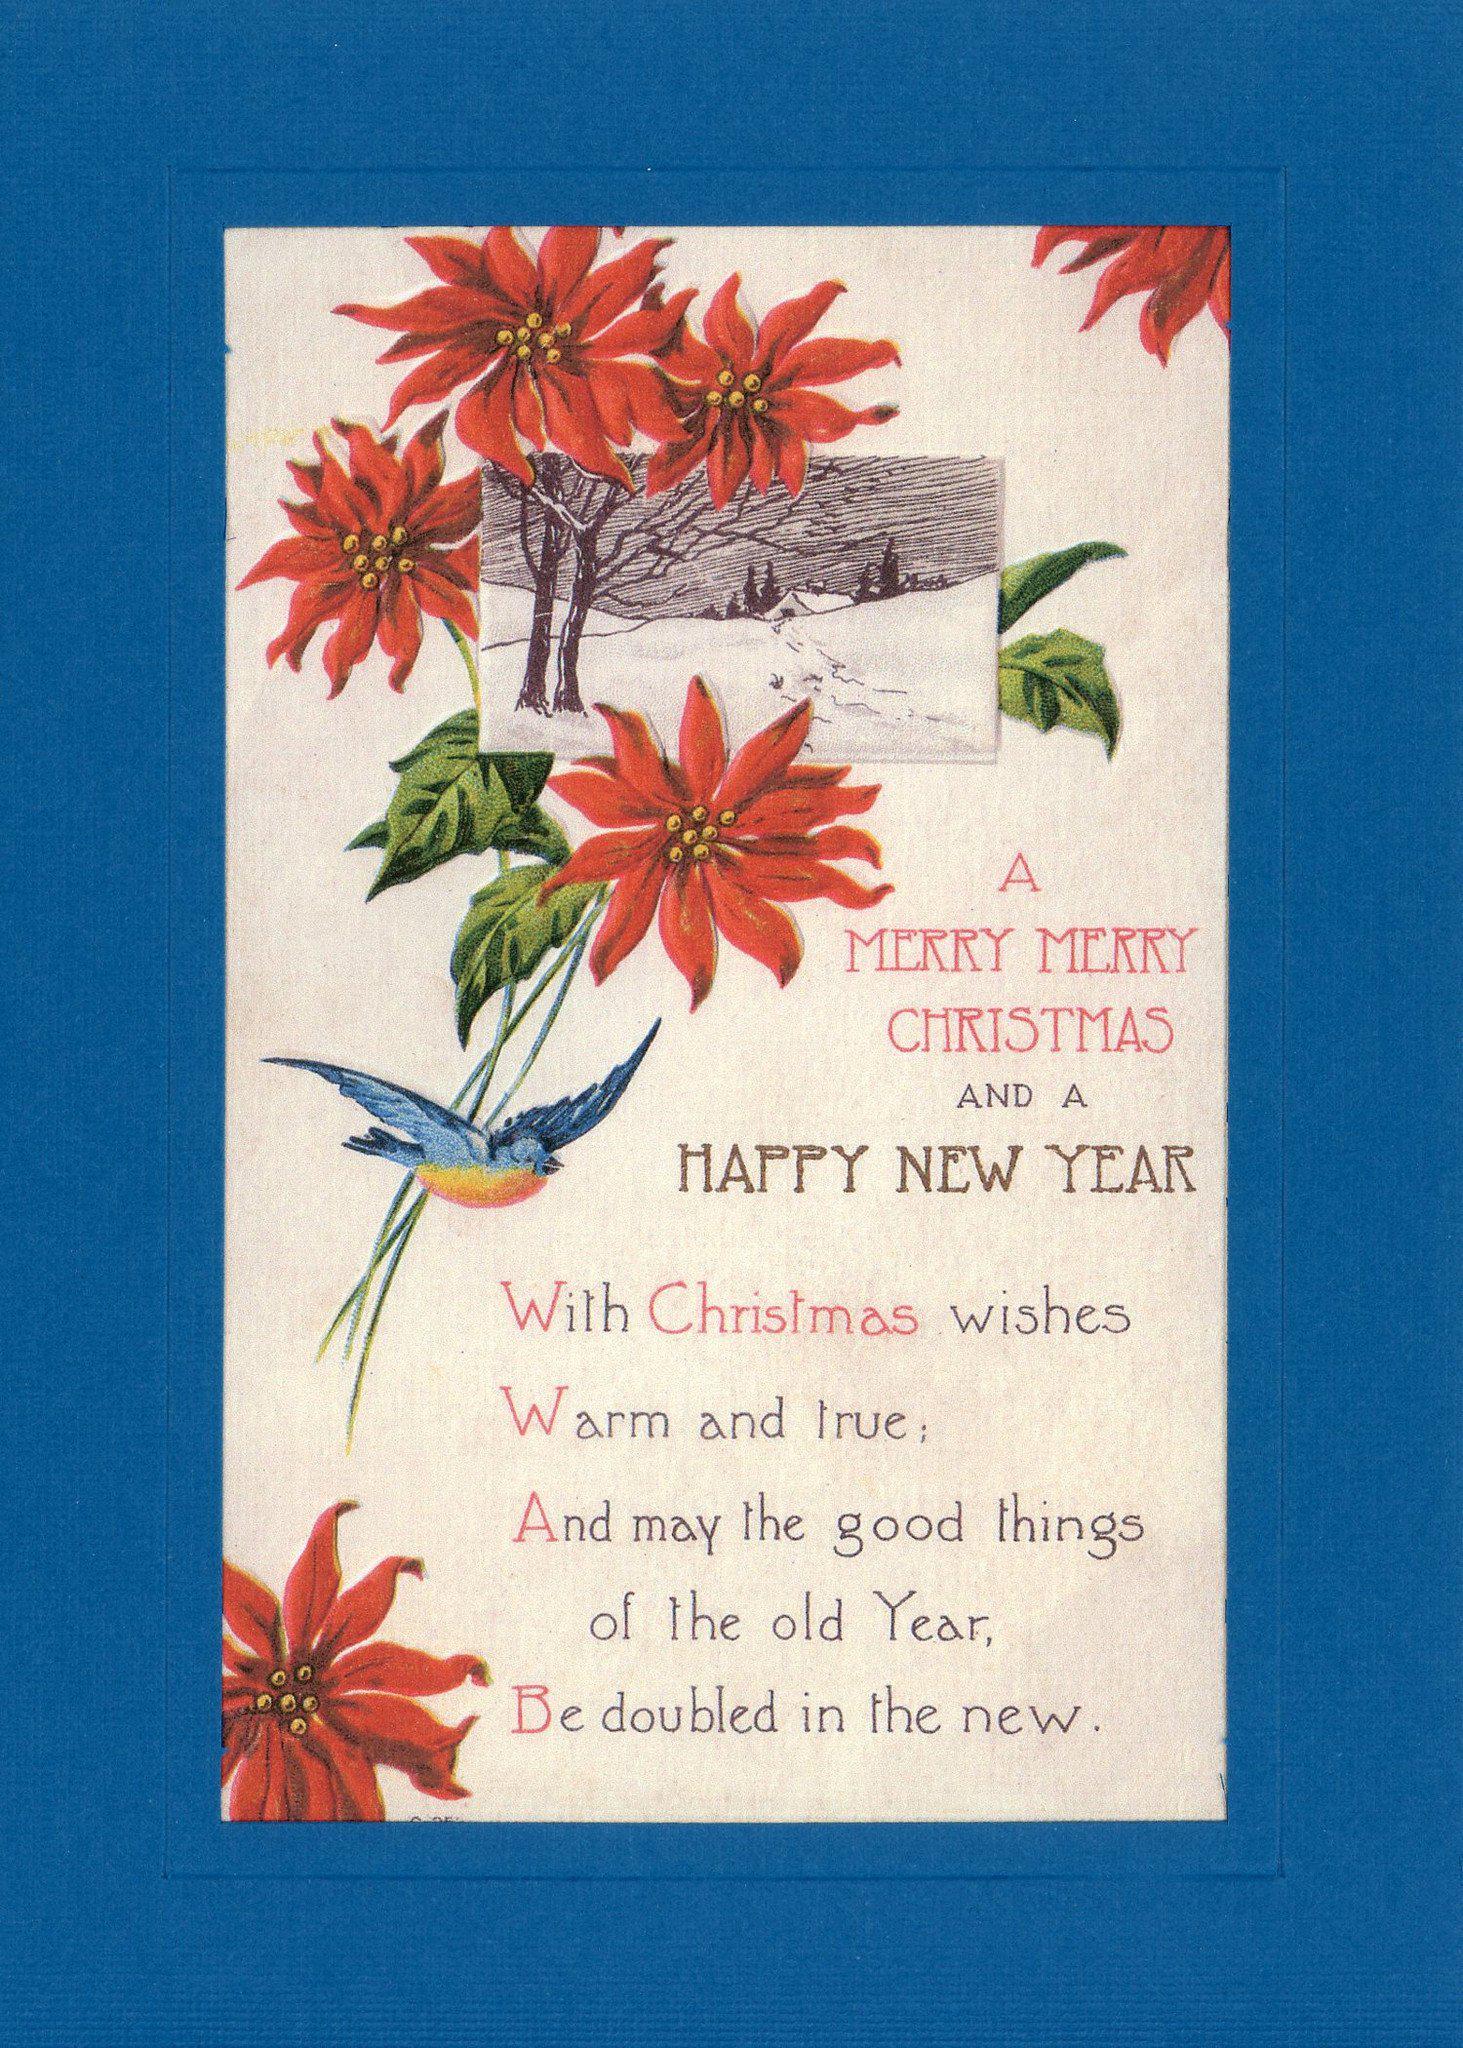 A
MERRY MERRY
CHRISTMAS
AND A
HAPPY NEW YEAR
With Christmas wishes
Warm and true;
And may the good things
of the old Year,
Be doubled in the new.